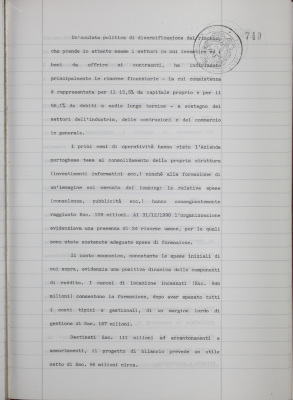 740
Un'oculata politica di diversificazione del rischio,
che prende in attento esame i settori in cui investire ed i
beni da offrire ai contraenti, ha indirizzato
principalmente le risorse finanziarie - la cui consistenza
è rappresentata per il da capitale proprio e per il
da debiti a medio lungo termine - a sostegno dei
settori dell'industria, delle costruzioni e del commercio
in generale.
I primi mesi di operatività hanno visto l'Azienda
portoghese tesa al consolidamento della propria struttura
(investimenti informatici ecc.) nonchè alla formazione di
un'immagine sul mercato del leasing: le relative spese
(consulenze, pubblicità ecc.) hanno conseguentemente
raggiunto Esc. milioni. Al 31/12/1990 l'organizzazione
evidenziava una presenza di 24 risorse umane, per le quali
sono state sostenute adeguate spese di formazione.
Il conto economico, nonostante le spese iniziali di
cui sopra, evidenzia una positiva dinamica delle componenti
di reddito. I canoni di locazione incassati (Esc.
milioni) consentono la formazione, dopo aver spesato tutti
i costi tipici e gestionali, di un margine lordo di
gestione di Esc. 187 milioni.
Destinati Esc. 111 milioni ad accantonamenti e
ammortamenti, il progetto di bilancio prevede un utile
netto di Esc. milioni circa.